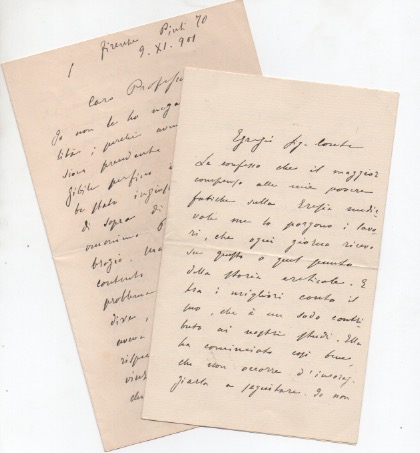 Firenze Pinti 70
9. XI. 901
Caro Professo
Io non le ho nega
perchè
sione prendente
gibile perfino
be stato ingius
di sopra di
omonimo
brogio. Ma
contento
problema
dire,
aveva
rispe
che
Egregio Sig. Conte
Le confesso che il maggior
compenso alle mie povere
fatiche sulla Eresia medie
vale me lo porgono i lavo
ri, che ogni giorno ricevo
su questo o quel punto
della storia ereticale. E
tra i migliori conto il
suo, che è un sodo contri
buto ai nostri studi. Ella
ha cominciato così bene,
che non occorre d'incorag.
giarla a seguitare. Io non